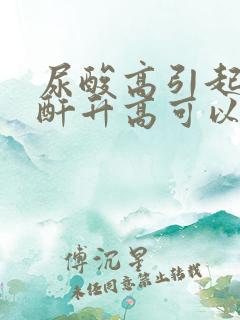 尿酸高引起
酐升高可以
傅沉星
未经同意禁止转载